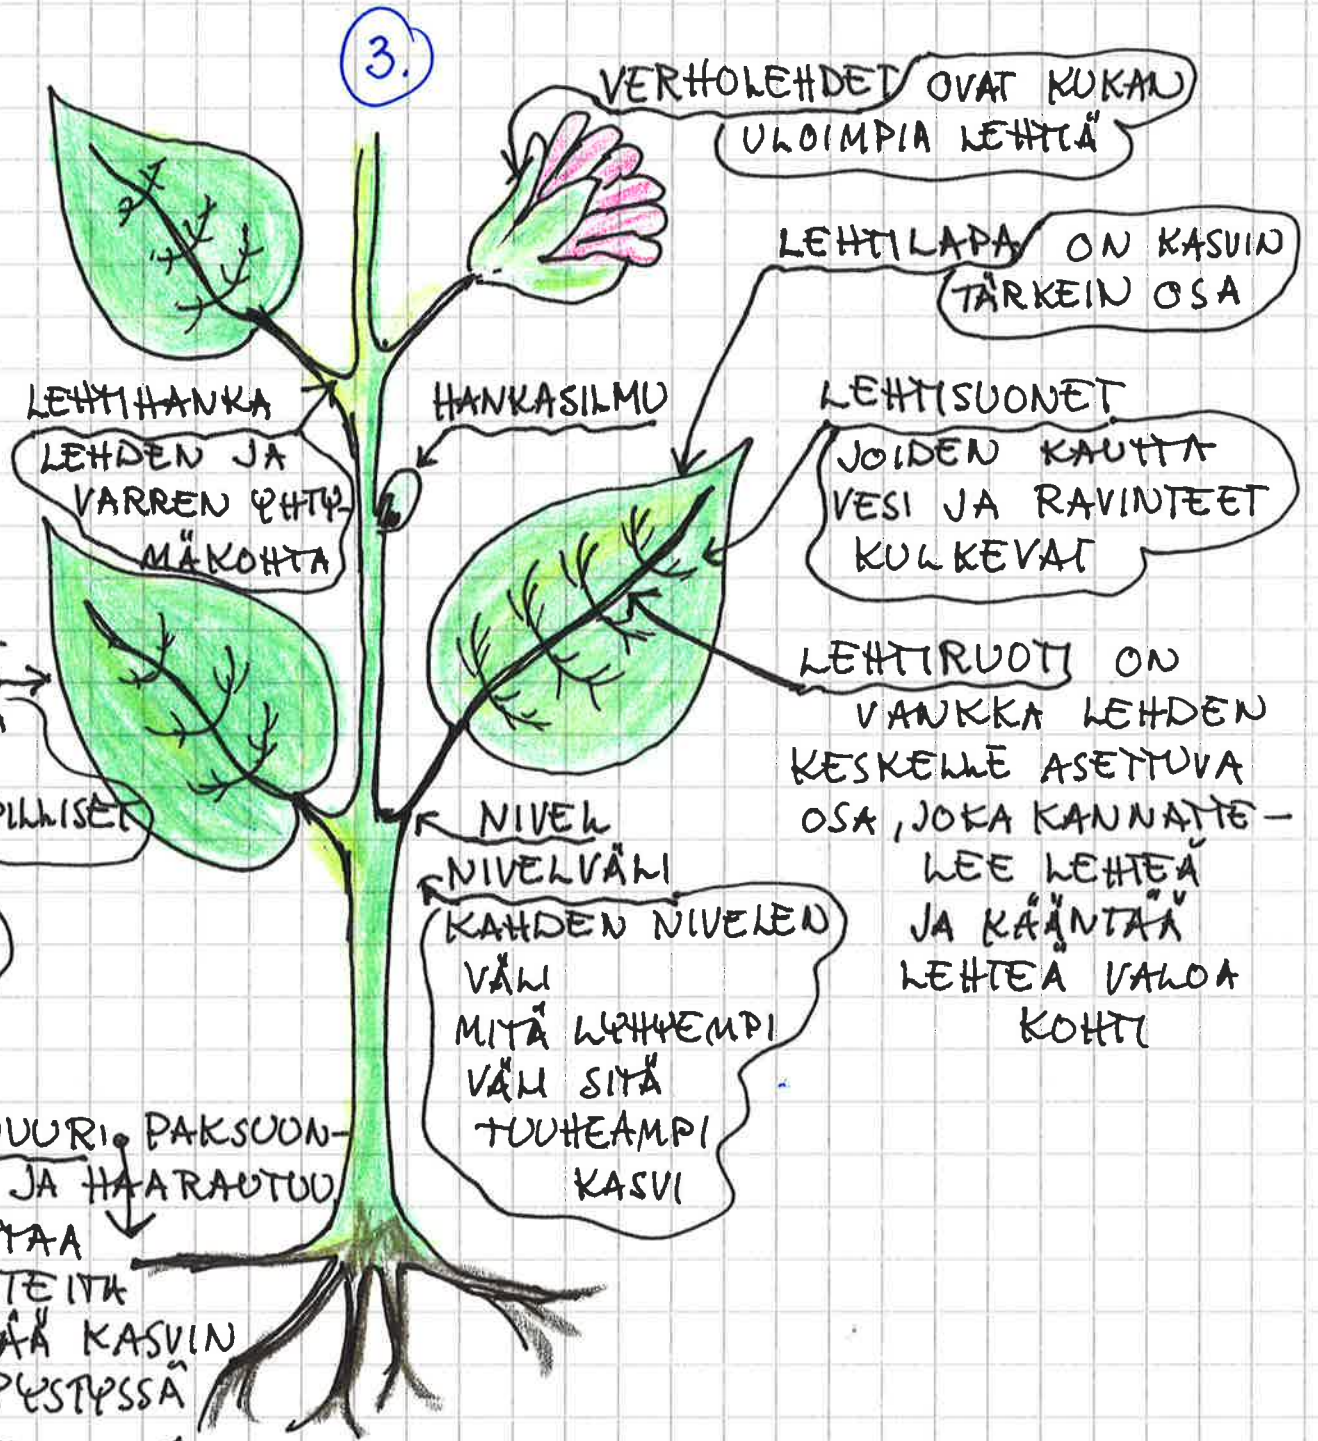 3.
VERHOLEHDET OVAT KUKAN
ULOIMPIA LEHTIÄ
LEHTILAPA ON KASVIN
TÄRKEIN OSA
LEHTIHANKA
LEHDEN JA
VARREN YHTY-
MÄKOHTA
HANKASILMU
LEHTISUONET
JOIDEN KAUTTA
VESI JA RAVINTEET
KULKEVAT
LEHTIRUOTI ON
VANKKA LEHDEN
KESKELLE ASETTUVA
OSA, JOKA KANNATTE-
LEE LEHTEÄ
JA KÄÄNTÄÄ
LEHTEÄ VALOA
KOHTI
PILLISET
NIVEL
NIVELVÄLI
KAHDEN NIVELEN
VÄLI
MITÄ LYHYEMPI
VÄLI SITÄ
TUUHEAMPI
KASVI
UURI PAKSUON-
JA HAARAUTUU
TAA
TEITA
ÄÄ KASVIN
PYSTYSSÄ